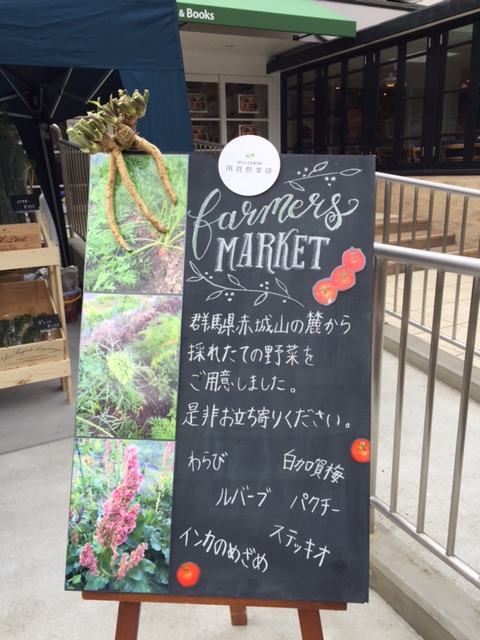 & Books
farmers
MARKET
群馬県赤城山の麓から
採れたての野菜を
ご用意しました。
是非お立ち寄りください。
わらび
白加賀梅
ルバーブ
パクチー
インカのめざめ
ステッキオ